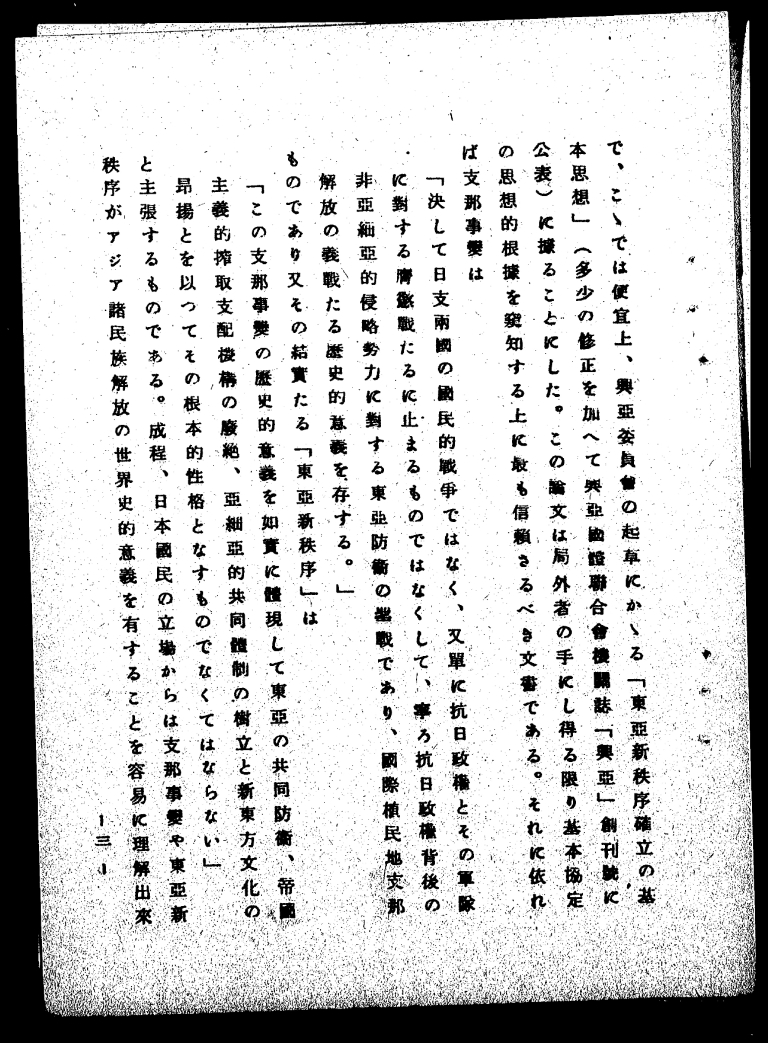 で、こゝでは便宜上、興亞委員會の起草にかゝる「東亞新秩序確立の基
本思想」（多少の修正を加へて興亞國體聯合會機關誌「興亞」創刊號に
公表）に據ることにした。この論文は局外者の手にし得る限り基本協定
の思想的根據を窺知する上に最も信頼さるべき文書である。それに依れ
ば支那事變は
「決して日支兩國の國民的戰爭ではなく、又單に抗日政權とその軍隊
に對する膺懲戰たるに止まるものではなくして、寧ろ抗日政權背後の
非亞細亞的侵略勢力に對する東亞防衞の戰であり、國際植民地支那
解放の義戰たる歴史的意義を存する。」
ものであり又その結實たる「東亞新秩序」は
「この支那事變の歴史的意義を如實に體現して東亞の共同防衞、帝國
主義的搾取支配機構の廢絶、亞細亞的共同體制の樹立と新東方文化の
昂揚とを以つてその根本的性格となすものでなくてはならない」
と主張するものである。成程、日本國民の立場からは支那事變や東亞新
秩序がアジア諸民族解放の世界史的意義を有することを容易に理解出來
ー三ー